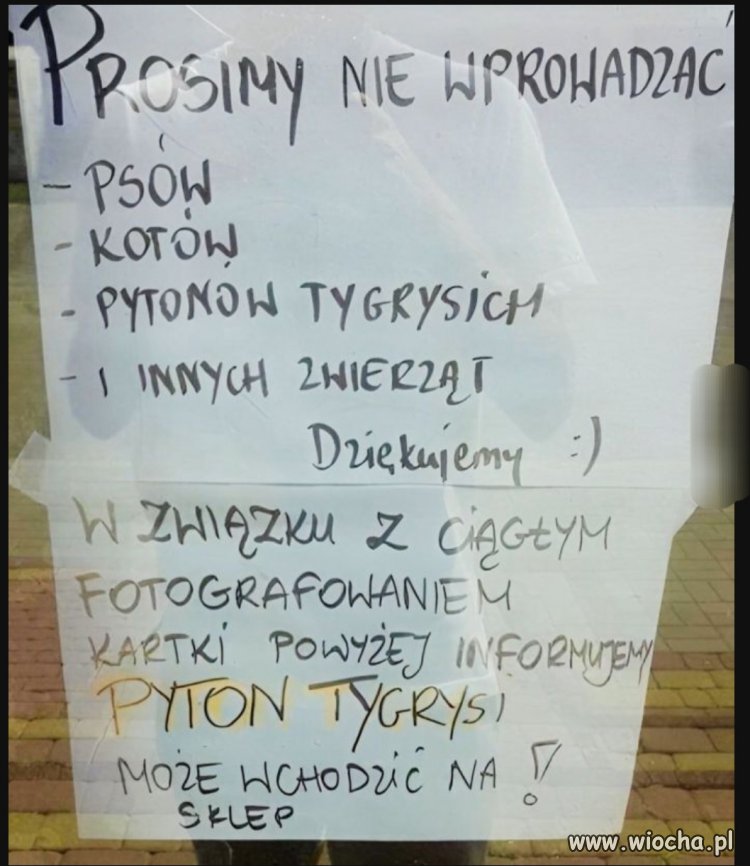 PROSIMY NIE WPROWADZAC
- PSÓW
- KOTÓW
- PYTONÓW TYGRYSICH
- I INNYCH ZWIERZĄT
Dziękujemy :)
W ZWIĄZKU Z CIĄGŁYM
FOTOGRAFOWANIEM
KARTKI POWYŻEJ INFORMUJEMY
PYTON TYGRYSI
MOŻE WCHODZIĆ NA !
SKLEP
www.wiocha.pl